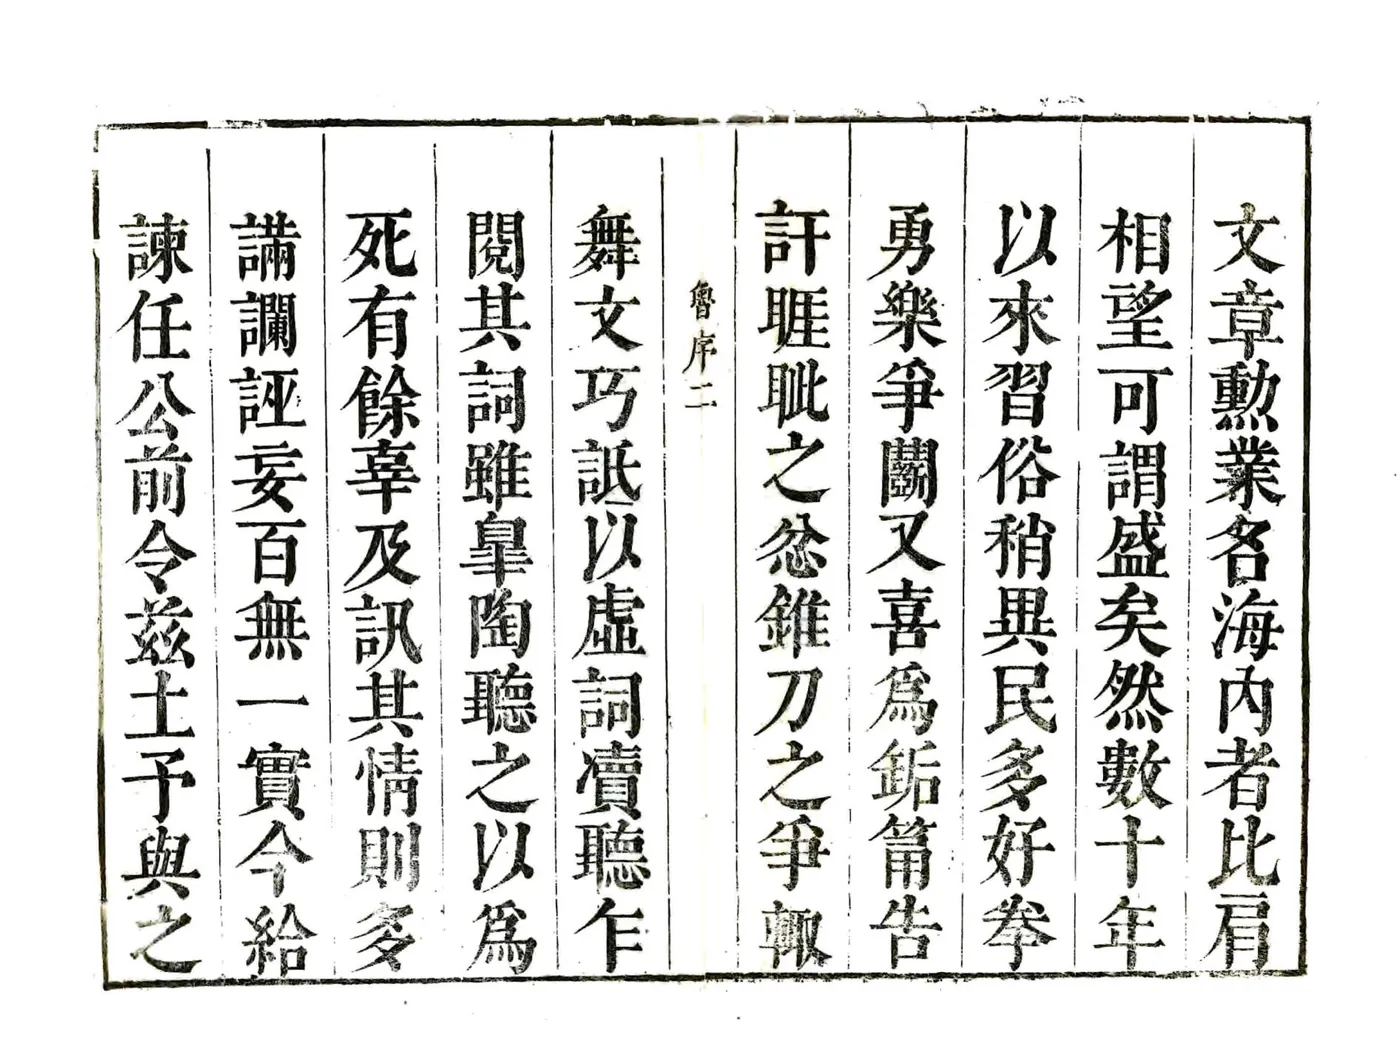 文章勲業名海內者比肩
相望可謂盛矣然數十年
以來習俗稍異民多好拳
勇樂爭鬬又喜爲銗筩告
訐睚眦之忿錐刀之爭輙
魯序二
舞文巧詆以虛詞瀆聽乍
閱其詞雖臯陶聽之以爲
死有餘辜及訊其情則多
讕誣妄百無一實今給
諫任公前令兹土予與之